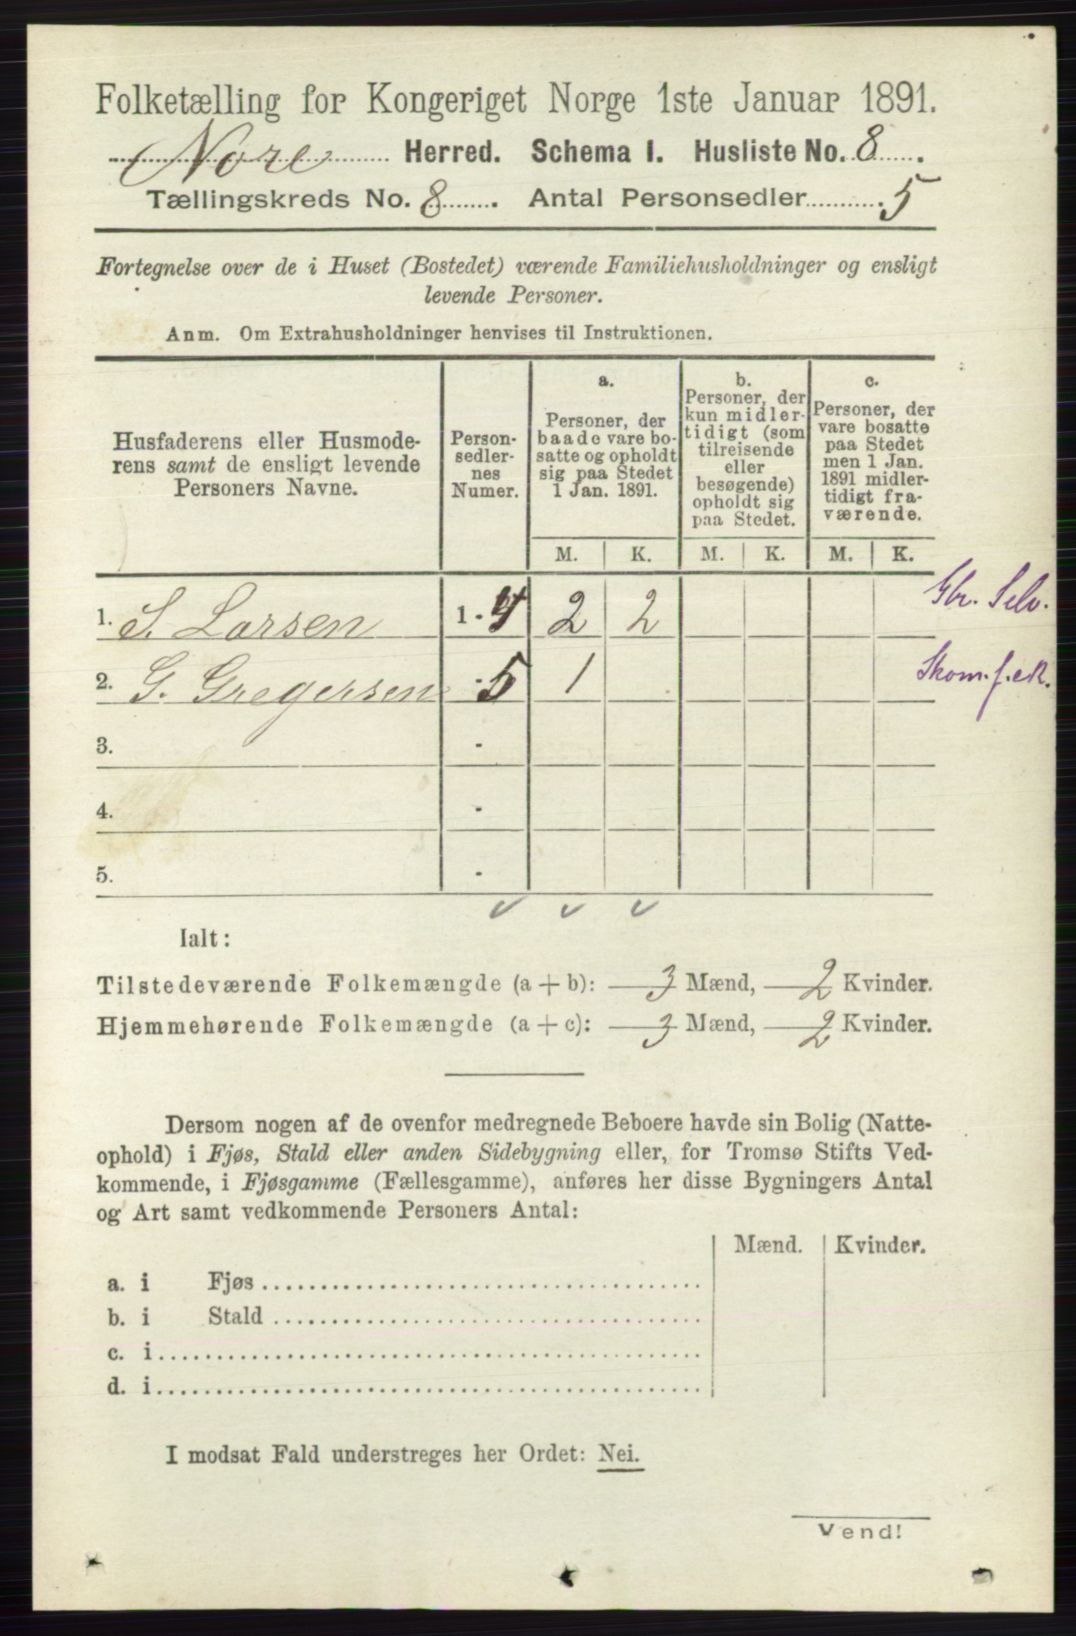 Folketælling for Kongeriget Norge 1ste Januar 1891.
Nore Herred. Schema I. Husliste No. 8.
Tællingskreds No. 8. Antal Personsedler 5
Fortegnelse over de i Huset (Bostedet) værende Familiehusholdninger og ensligt
levende Personer.
Anm. Om Extrahusholdninger henvises til Instruktionen.
Husfaderens eller Husmode-
rens samt de ensligt levende
Personers Navne.
Person-
sedler-
nes
Numer.
a.
Personer, der
baade vare bo-
satte og opholdt
sig paa Stedet
1 Jan. 1891.
b.
Personer, der
kun midler-
tidigt (som
tilreisende
eller
besøgende)
opholdt sig
paa Stedet.
c.
Personer, der
vare bosatte
paa Stedet
men 1 Jan.
1891 midler-
tidigt fra-
værende.
M. K. M. K. M. K.
1. S. Larsen 1-4 2 2 Gbr. Selv.
2. G. Gregersen -5 1 Skom. f.e.R.
3. -
4. -
5. -
Ialt:
Tilstedeværende Folkemængde (a + b): 3 Mænd, 2 Kvinder.
Hjemmehørende Folkemængde (a + c): 3 Mænd, 2 Kvinder.
Dersom nogen af de ovenfor medregnede Beboere havde sin Bolig (Natte-
ophold) i Fjøs, Stald eller anden Sidebygning eller, for Tromsø Stifts Ved-
kommende, i Fjøsgamme (Fællesgamme), anføres her disse Bygningers Antal
og Art samt vedkommende Personers Antal:
Mænd. Kvinder.
a. i Fjøs
b. i Stald
c. i
d. i
I modsat Fald understreges her Ordet: Nei.
Vend!